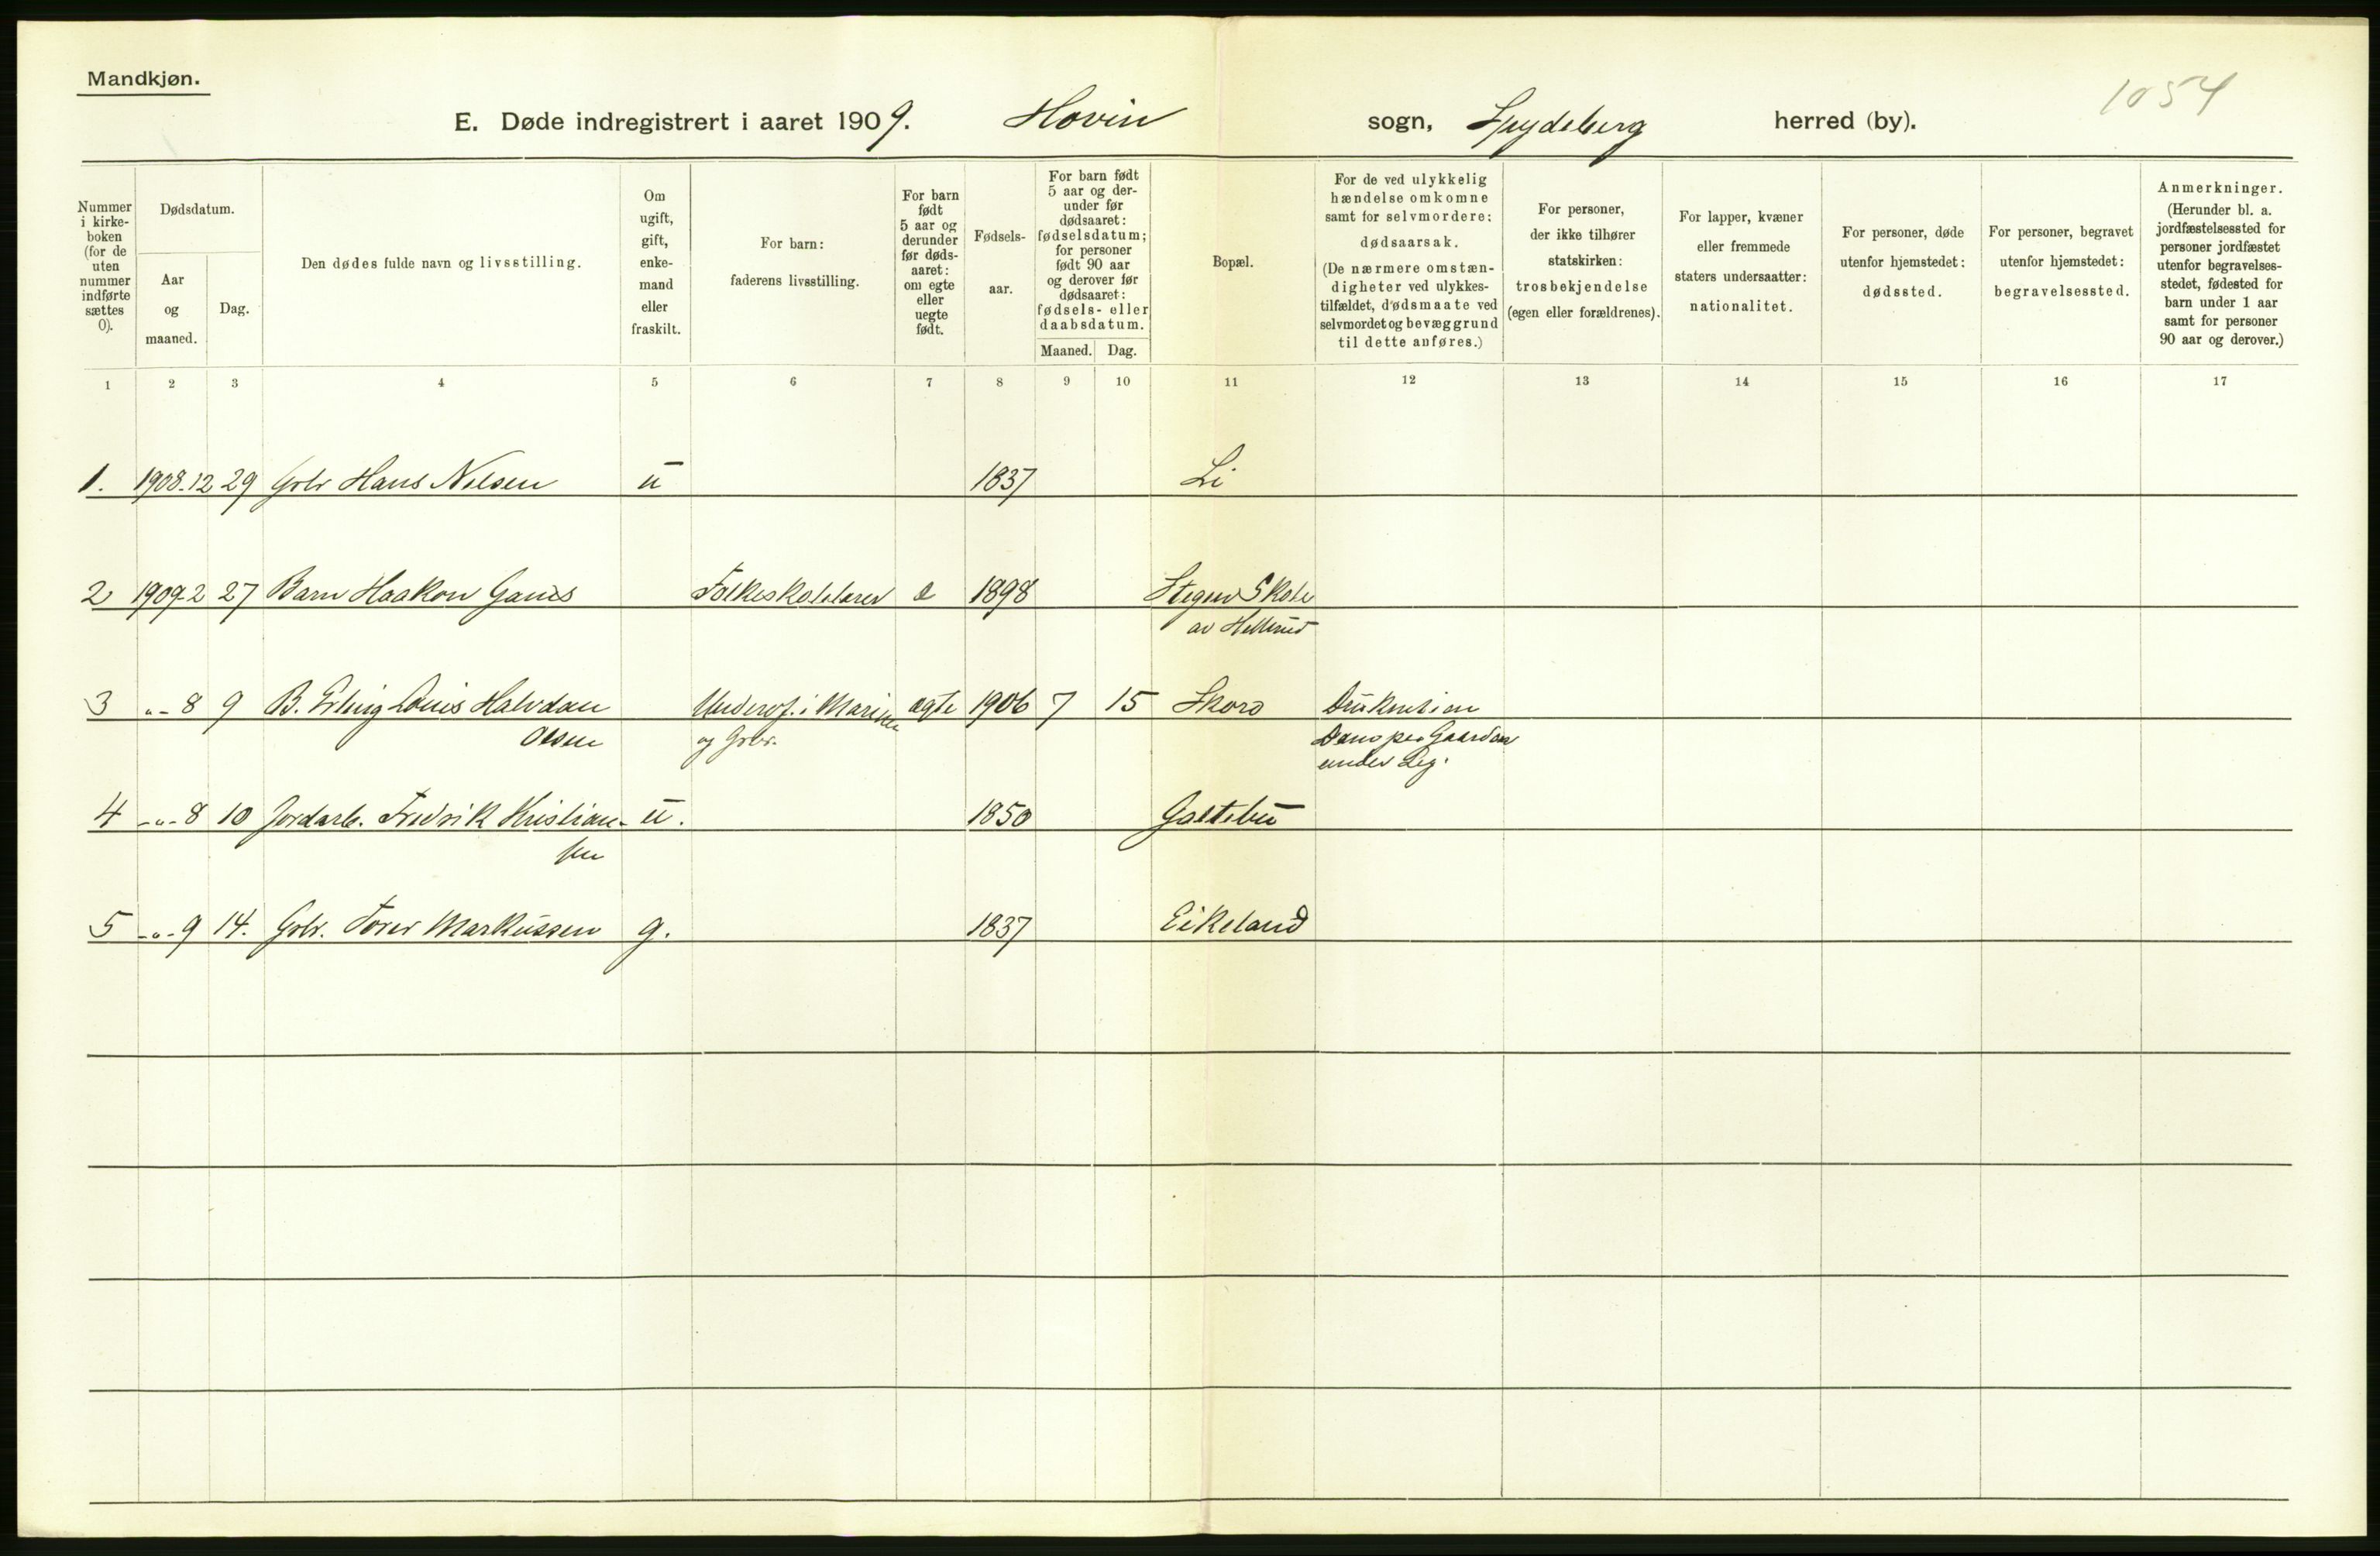 Mandkjøn.
1054
E. Døde indregistrert i aaret 1909. Hovin sogn, Spydeberg herred (by).
Nummer i kirke-boken (for de uten nummer indførte sættes 0).
Dødsdatum.
Aar og maaned.
Dag.
Den dødes fulde navn og livsstilling.
Om ugift, gift, enke-mand eller fraskilt.
For barn: faderens livsstilling.
For barn født 5 aar og derunder før døds-aaret: om egte eller uegte født.
Fødsels-aar.
For barn født 5 aar og der-under før dødsaaret: fødselsdatum; for personer født 90 aar og derover før dødsaaret: fødsels- eller daabsdatum.
Maaned.
Dag.
Bopæl.
For de ved ulykkelig hændelse omkomne samt for selvmordere: dødsaarsak. (De nærmere omstæn-digheter ved ulykkes-tilfældet, dødsmaate ved selvmordet og bevæggrund til dette anføres.)
For personer, der ikke tilhører statskirken: trosbekjendelse (egen eller forældrenes).
For lapper, kvæner eller fremmede staters undersaatter: nationalitet.
For personer, døde utenfor hjemstedet: dødssted.
For personer, begravet utenfor hjemstedet: begravelsessted.
Anmerkninger. (Herunder bl. a. jordfæstelsessted for personer jordfæstet utenfor begravelses-stedet, fødested for barn under 1 aar samt for personer 90 aar og derover.)
1 2 3 4 5 6 7 8 9 10 11 12 13 14 15 16 17
1. 1908.12 29 Grbr Hans Nilsen u 1837 Li
2 1909-2 27 Barn Haakon Ganes Folkeskolelærer e 1898 Stegen Skole
av Hellerud
3 "- 8 9 B. Erling Louis Halvdan Underof. i Marinen egte 1906 7 15 Skoro Druknet i en
Olsen og Grbr. Dam paa Gaarden
under Leg.
4 -"- 8 10 Jordarb. Fredrik Kristian- u. 1850 Galtebu
sen
5 -"- 9 14. Grbr. Torer Markussen g. 1837 Eikeland